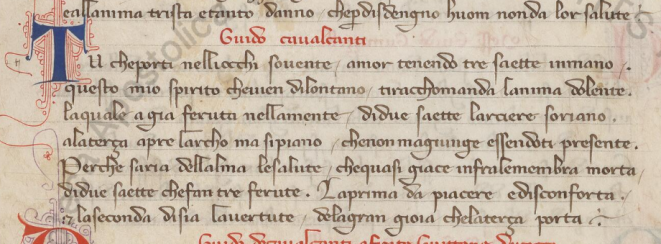 eallanima trista etanto danno cheperdisdengno huom nonda lor salute
Guido cavalcanti
Tu cheporti nelliocchi sovente amor tenendo tre saette inmano .
questo mio spirito cheuien dilontano tiracchomanda lanima dolente .
laquale agia feruta nellamente didue saette larciere soriano .
alaterça apre larcho ma sipiano chenon magiunge essendoti presente .
Perche saria dellalma lesalute chequasi giace infralemembra morta
didue saette chefan tre ferute . Laprima da piacere edisconforta .
& laseconda disia lauertute delagran gioia chelaterça porta